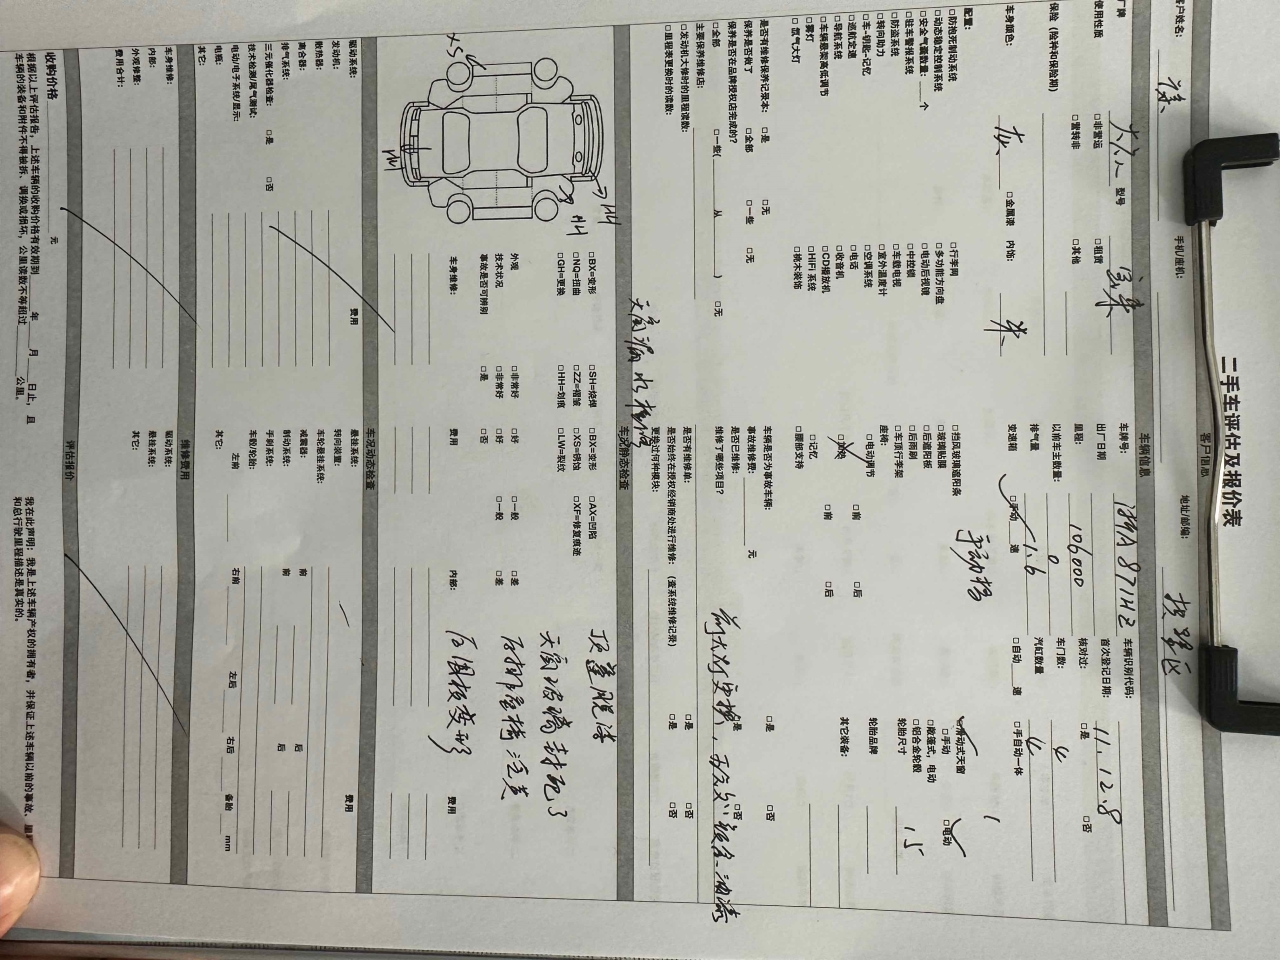 二手车评估及报价表
客户信息
客户姓名： 手机/座机： 地址/邮编：
车辆信息
厂牌 大众 型号 宝来 车牌号： 浙A871HZ 车辆识别代码：
使用性质 □非营运 □租赁 出厂日期 首次登记日期： 11.12.8
□营转非 □其他 里程： 106000 核对过： □是 □否
保险（险种和保险期） 以前车主数量： 0 车门数： 4
排气量 1.6 汽缸数量 4
车身颜色： 灰 □金属漆 内饰： 米 变速箱 □手动 速 □自动 速 □手自动一体
手动档
配置：
□防抱死制动系统 □行李网 □挡风玻璃遮阳条 □滑动式天窗
□动态稳定控制系统 □多功能方向盘 □玻璃贴膜 □手动 □电动
□安全气囊数量： 个 □电动后视镜 □后遮阳板 □敞篷式，电动
□驻车警报系统 □中控锁 □后雨刷 □铝合金轮毂
□防盗系统 □车载电视 □车顶行李架 轮胎尺寸 15
□转向助力 □室外温度计 座椅：
□车-钥匙-记忆 □空调系统 □电动调节 □前 □后 轮胎品牌
□巡航定速 □电话
□导航系统 □收音机 其它装备：
□车辆悬架高低调节 □CD播放机 □记忆 □前 □后
□雾灯 □HIFI 系统 □腰部支持
□氙气大灯 □桃木装饰
是否有维修保养记录本： □是 □无 车辆是否为事故车辆： □是 □否
保养是否做了 □全部 □一些 □无 事故维修费： 元
保养是否在品牌授权店完成的？ 是否已维修： □是 □否
□全部 □一些( 从 ) □无 维修了哪些项目？
主要保养维修店： 是否有维修单： □是 □否
□发动机大修时的里程读数： 是否始终在授权经销商处进行维修：（查系统维修记录） □是 □否
□里程表更换时的读数： 更换过何种模块：
天窗漏水
车况静态检查
XS HH HH
□BX=变形 □SH=烧焊 □BX=变形 □AX=凹陷
□NQ=扭曲 □ZZ=褶皱 □XS=锈蚀 □XF=修复痕迹
□GH=更换 □HH=划痕 □LW=裂纹
顶蓬脱漆
天窗玻璃封死了
外观 □非常好 □好 □一般 □差
技术状况 □非常好 □好 □一般 □差
事故是否可辨别 □是 □否
车身维修： 费用 内部： 费用
车况动态检查
驱动系统： 费用 悬挂系统： 费用
发动机： 转向装置：
散热器： 车轮悬挂系统：
离合器： 减震器： 前 后
排气系统： 制动系统： 前 后
三元催化器检查： □是 □否 手刹系统：
技术检测/尾气测试： 车毂/轮胎：
电动/电子系统/显示： 左前 右前 左后 右后 备胎 mm
电瓶： 其它：
其它：
维修费用
车身维修： 驱动系统：
内部： 悬挂系统：
外观修整： 其它：
费用合计：
评估报价
收购价格 元
根据以上评估报告，上述车辆的收购价格有效期到 年 月 日止，且
车辆的装备和附件不得被拆、调换或损坏，公里读数不等超过 公里。
我在此声明：我是上述车辆产权的拥有者，并保证上述车辆以前的事故、里
和总行驶里程描述是真实的。